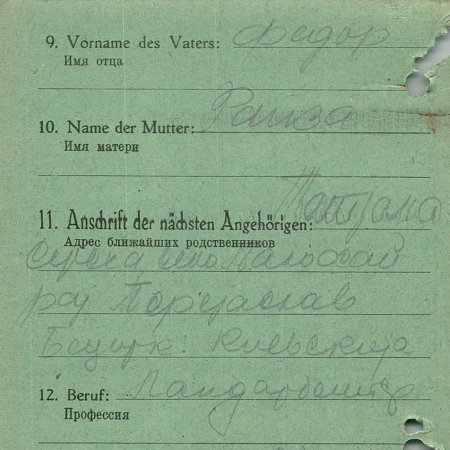 9. Vorname des Vaters: Федор
Имя отца
10. Name der Mutter: Раиза
Имя матери
11. Anschrift der nächsten Angehörigen:
Адрес ближайших родственников
рај Перејаслав
Бецирк: Киевскија
12. Beruf: Ландарбеитер
Профессия